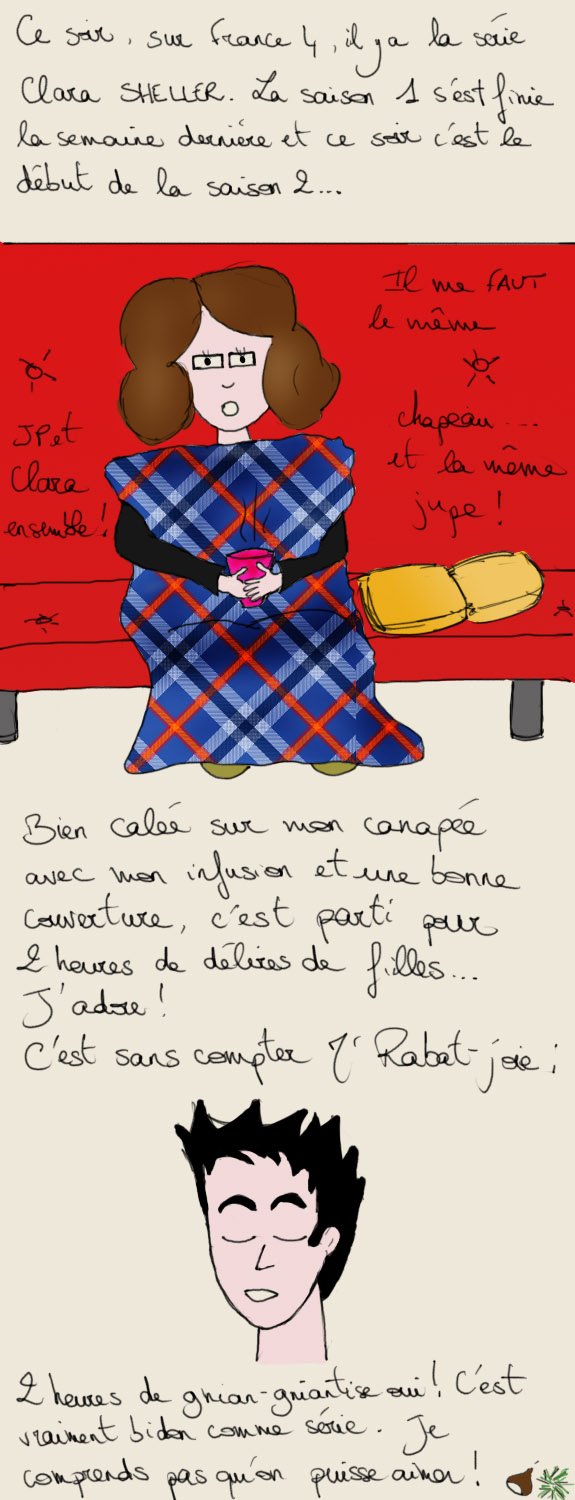 Ce soir, sur France 4, il y a la série
Clara SHELLER. La saison 1 s'est finie
la semaine dernière et ce soir c'est le
début de la saison 2...
JP et
Clara
ensemble !
Il me FAUT
le même
chapeau ...
et la même
jupe !
Bien calée sur mon canapée
avec mon infusion et une bonne
couverture, c'est parti pour
2 heures de délires de filles...
J'adore !
C'est sans compter Mr Rabat-joie :
2 heures de gnian-gniantise oui ! C'est
vraiment bidon comme série. Je
comprends pas qu'on puisse aimer !